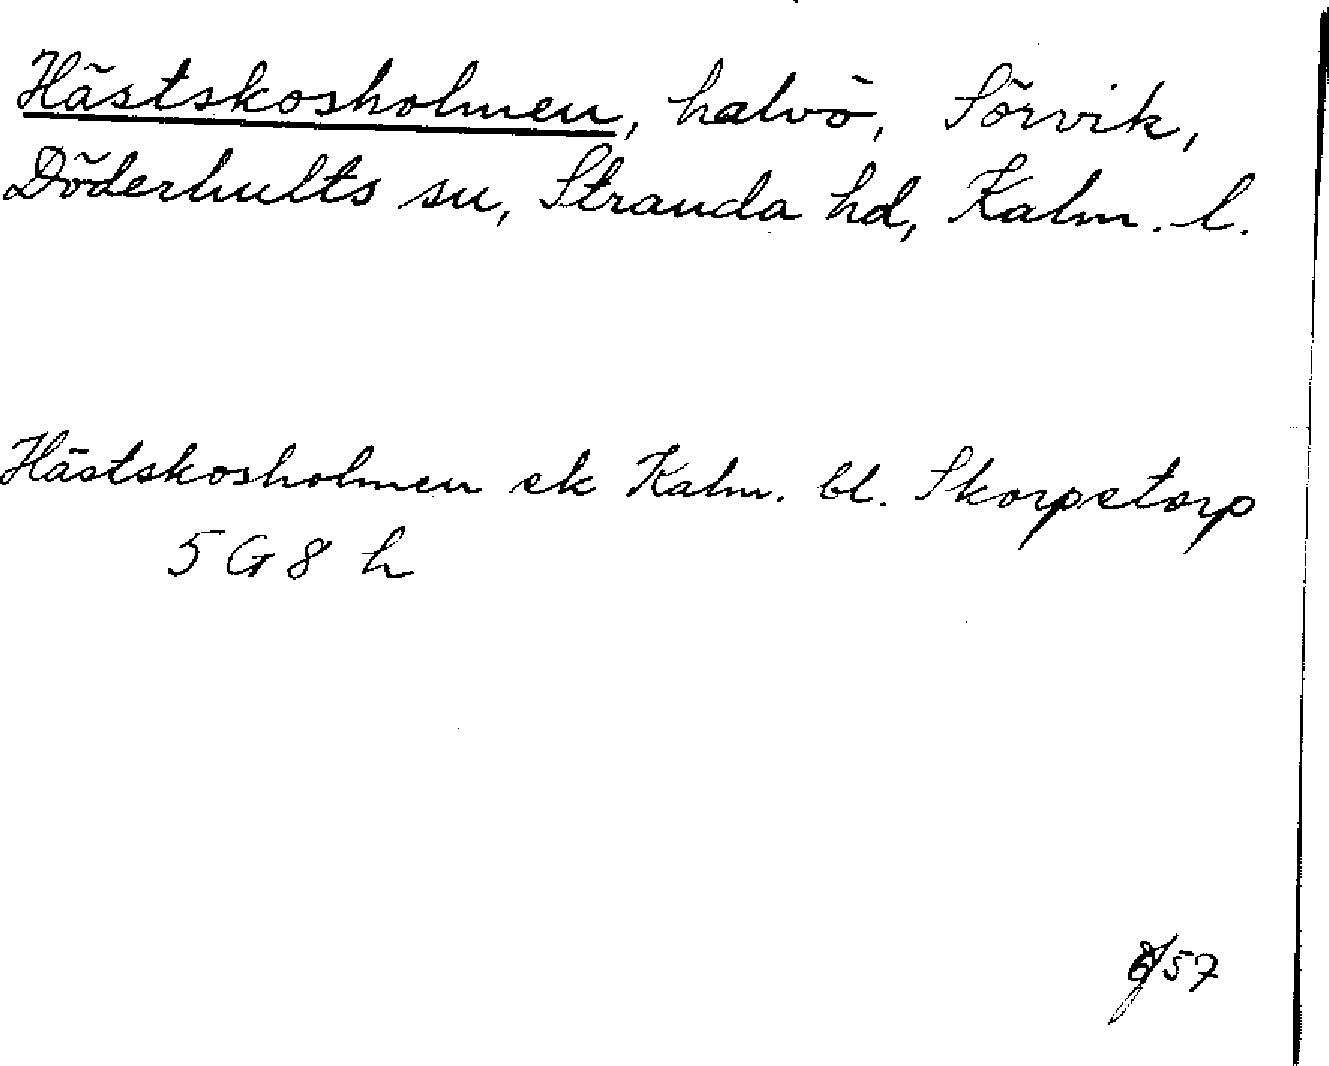 Hästskosholmen, halvö, Sörvik,
Döderhults sn, Stranda hd, Kalm. l.
Hästskosholmen ek Kalm. bl. Skorpetorp
5 G 8 h
/57